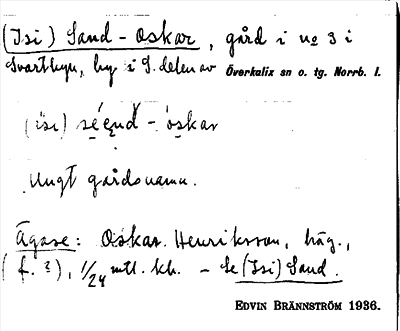 (Isi) Sand-Oskar, gård i no 3 i
Svartbyn, by i S. delen av Överkalix sn o. tg. Norrb. l.
(isi) séend-òskar
Ungt gårdsnamn.
Ägare: Oskar Henriksson, häg.,
(f. ?), 1/24 mtl. kh. – Se (Isi) Sand.
EDVIN BRÄNNSTRÖM 1936.